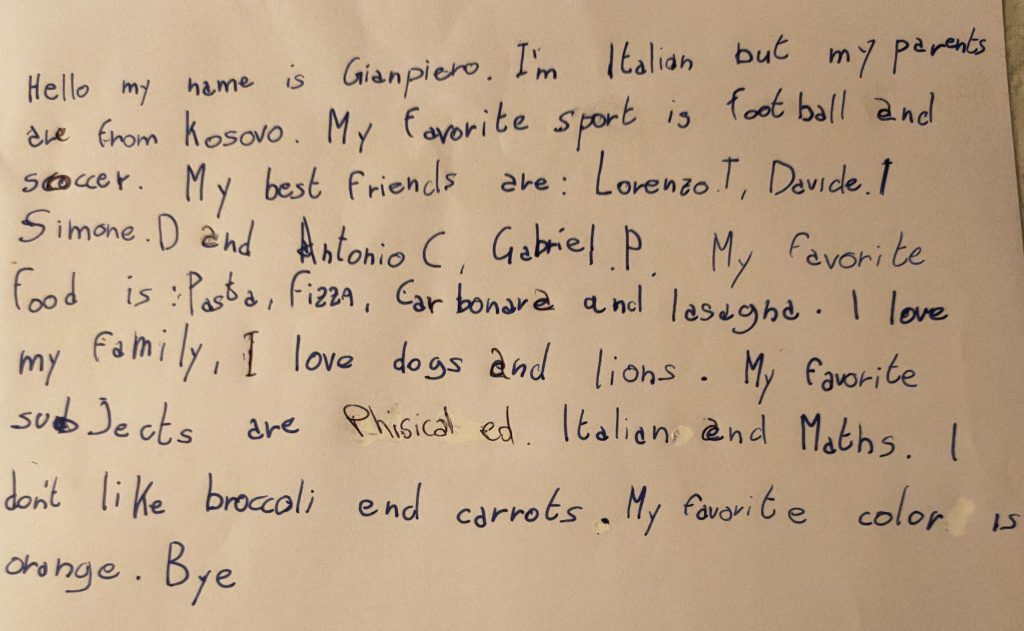 Hello my name is Gianpiero. I'm Italian but my parents
are from Kosovo. My favorite sport is football and
soccer. My best friends are: Lorenzo.T, Davide.I
Simone.D and Antonio C, Gabriel.P. My favorite
food is :Pasta, Pizza, Carbonara and lasagna. I love
my family, I love dogs and lions. My favorite
subJects are Phisical ed. Italian and Maths. I
don't like broccoli end carrots. My favorite color is
orange. Bye